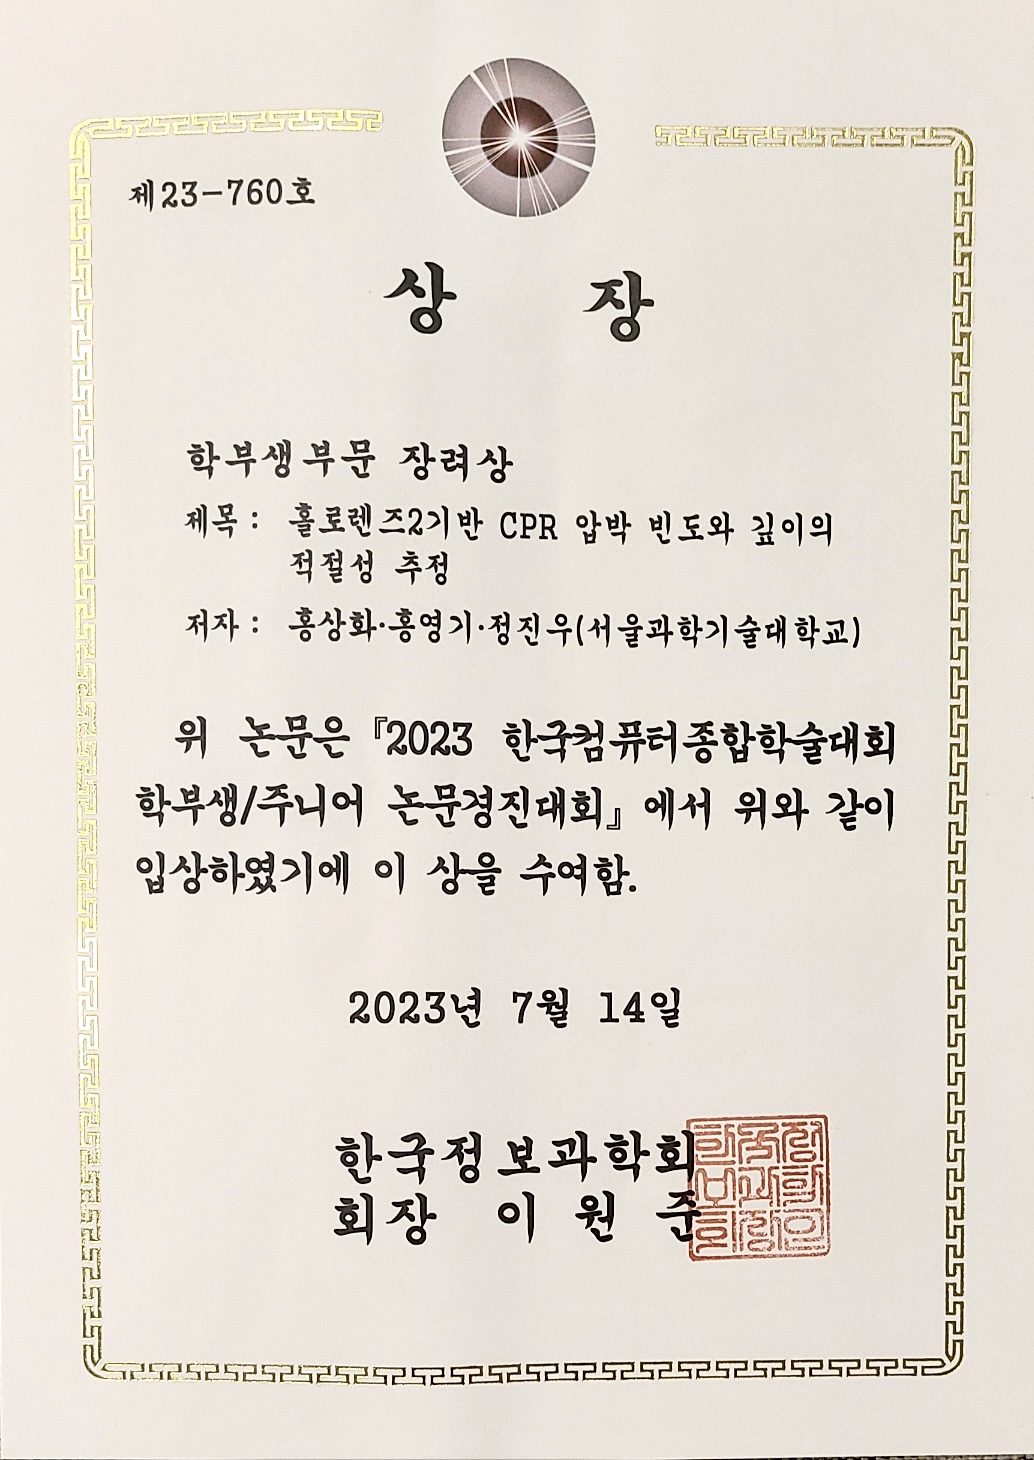 제23-760호
상 장
학부생부문 장려상
제목 : 홀로렌즈2기반 CPR 압박 빈도와 깊이의
적절성 추정
저자 : 홍상화·홍영기·정진우(서울과학기술대학교)
위 논문은 『2023 한국컴퓨터종합학술대회
학부생/주니어 논문경진대회』에서 위와 같이
입상하였기에 이 상을 수여함.
2023년 7월 14일
한국정보과학회
회장 이 원 준
한국정
보과학
회장인